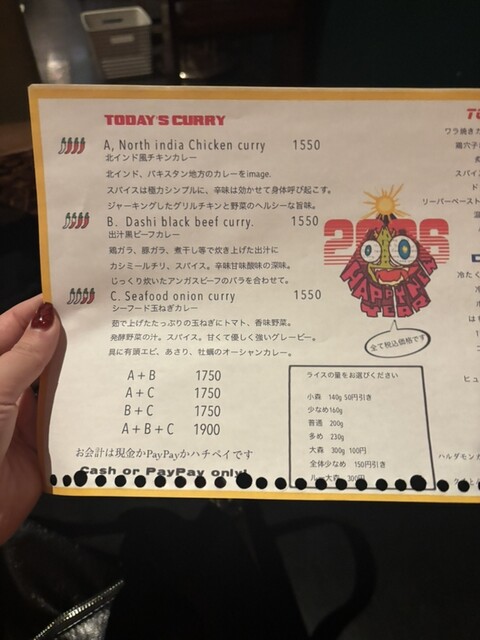 TODAY'S CURRY
A, North india Chicken curry 1550
北インド風チキンカレー
北インド、パキスタン地方のカレーをimage.
スパイスは極力シンプルに、辛味は効かせて身体呼び起こす。
ジャーキングしたグリルチキンと野菜のヘルシーな旨味。
B. Dashi black beef curry. 1550
出汁黒ビーフカレー
鶏ガラ、豚ガラ、煮干し等で炊き上げた出汁に
カシミールチリ、スパイス。辛味甘味酸味の深味。
じっくり炊いたアンガスビーフのバラを合わせて。
C. Seafood onion curry 1550
シーフード玉ねぎカレー
茹で上げたたっぷりの玉ねぎにトマト、香味野菜。
発酵野菜の汁。スパイス。甘くて優しく強いグレービー。
具に有頭エビ、あさり、牡蠣のオーシャンカレー。
A+B 1750
A+C 1750
B+C 1750
A+B+C 1900
お会計は現金かPayPayかハチペイです
Cash or PayPay only!
2026
HAPPY NEW YEAR
全て税込価格です
ライスの量をお選びください
小森 140g 50円引き
少なめ160g
普通 200g
多め 230g
大森 300g 100円
全体少なめ 150円引き
大森 300円
ワラ焼き
スパイ
リーバーペースト
冷たく
ヒュ
ハルダモン